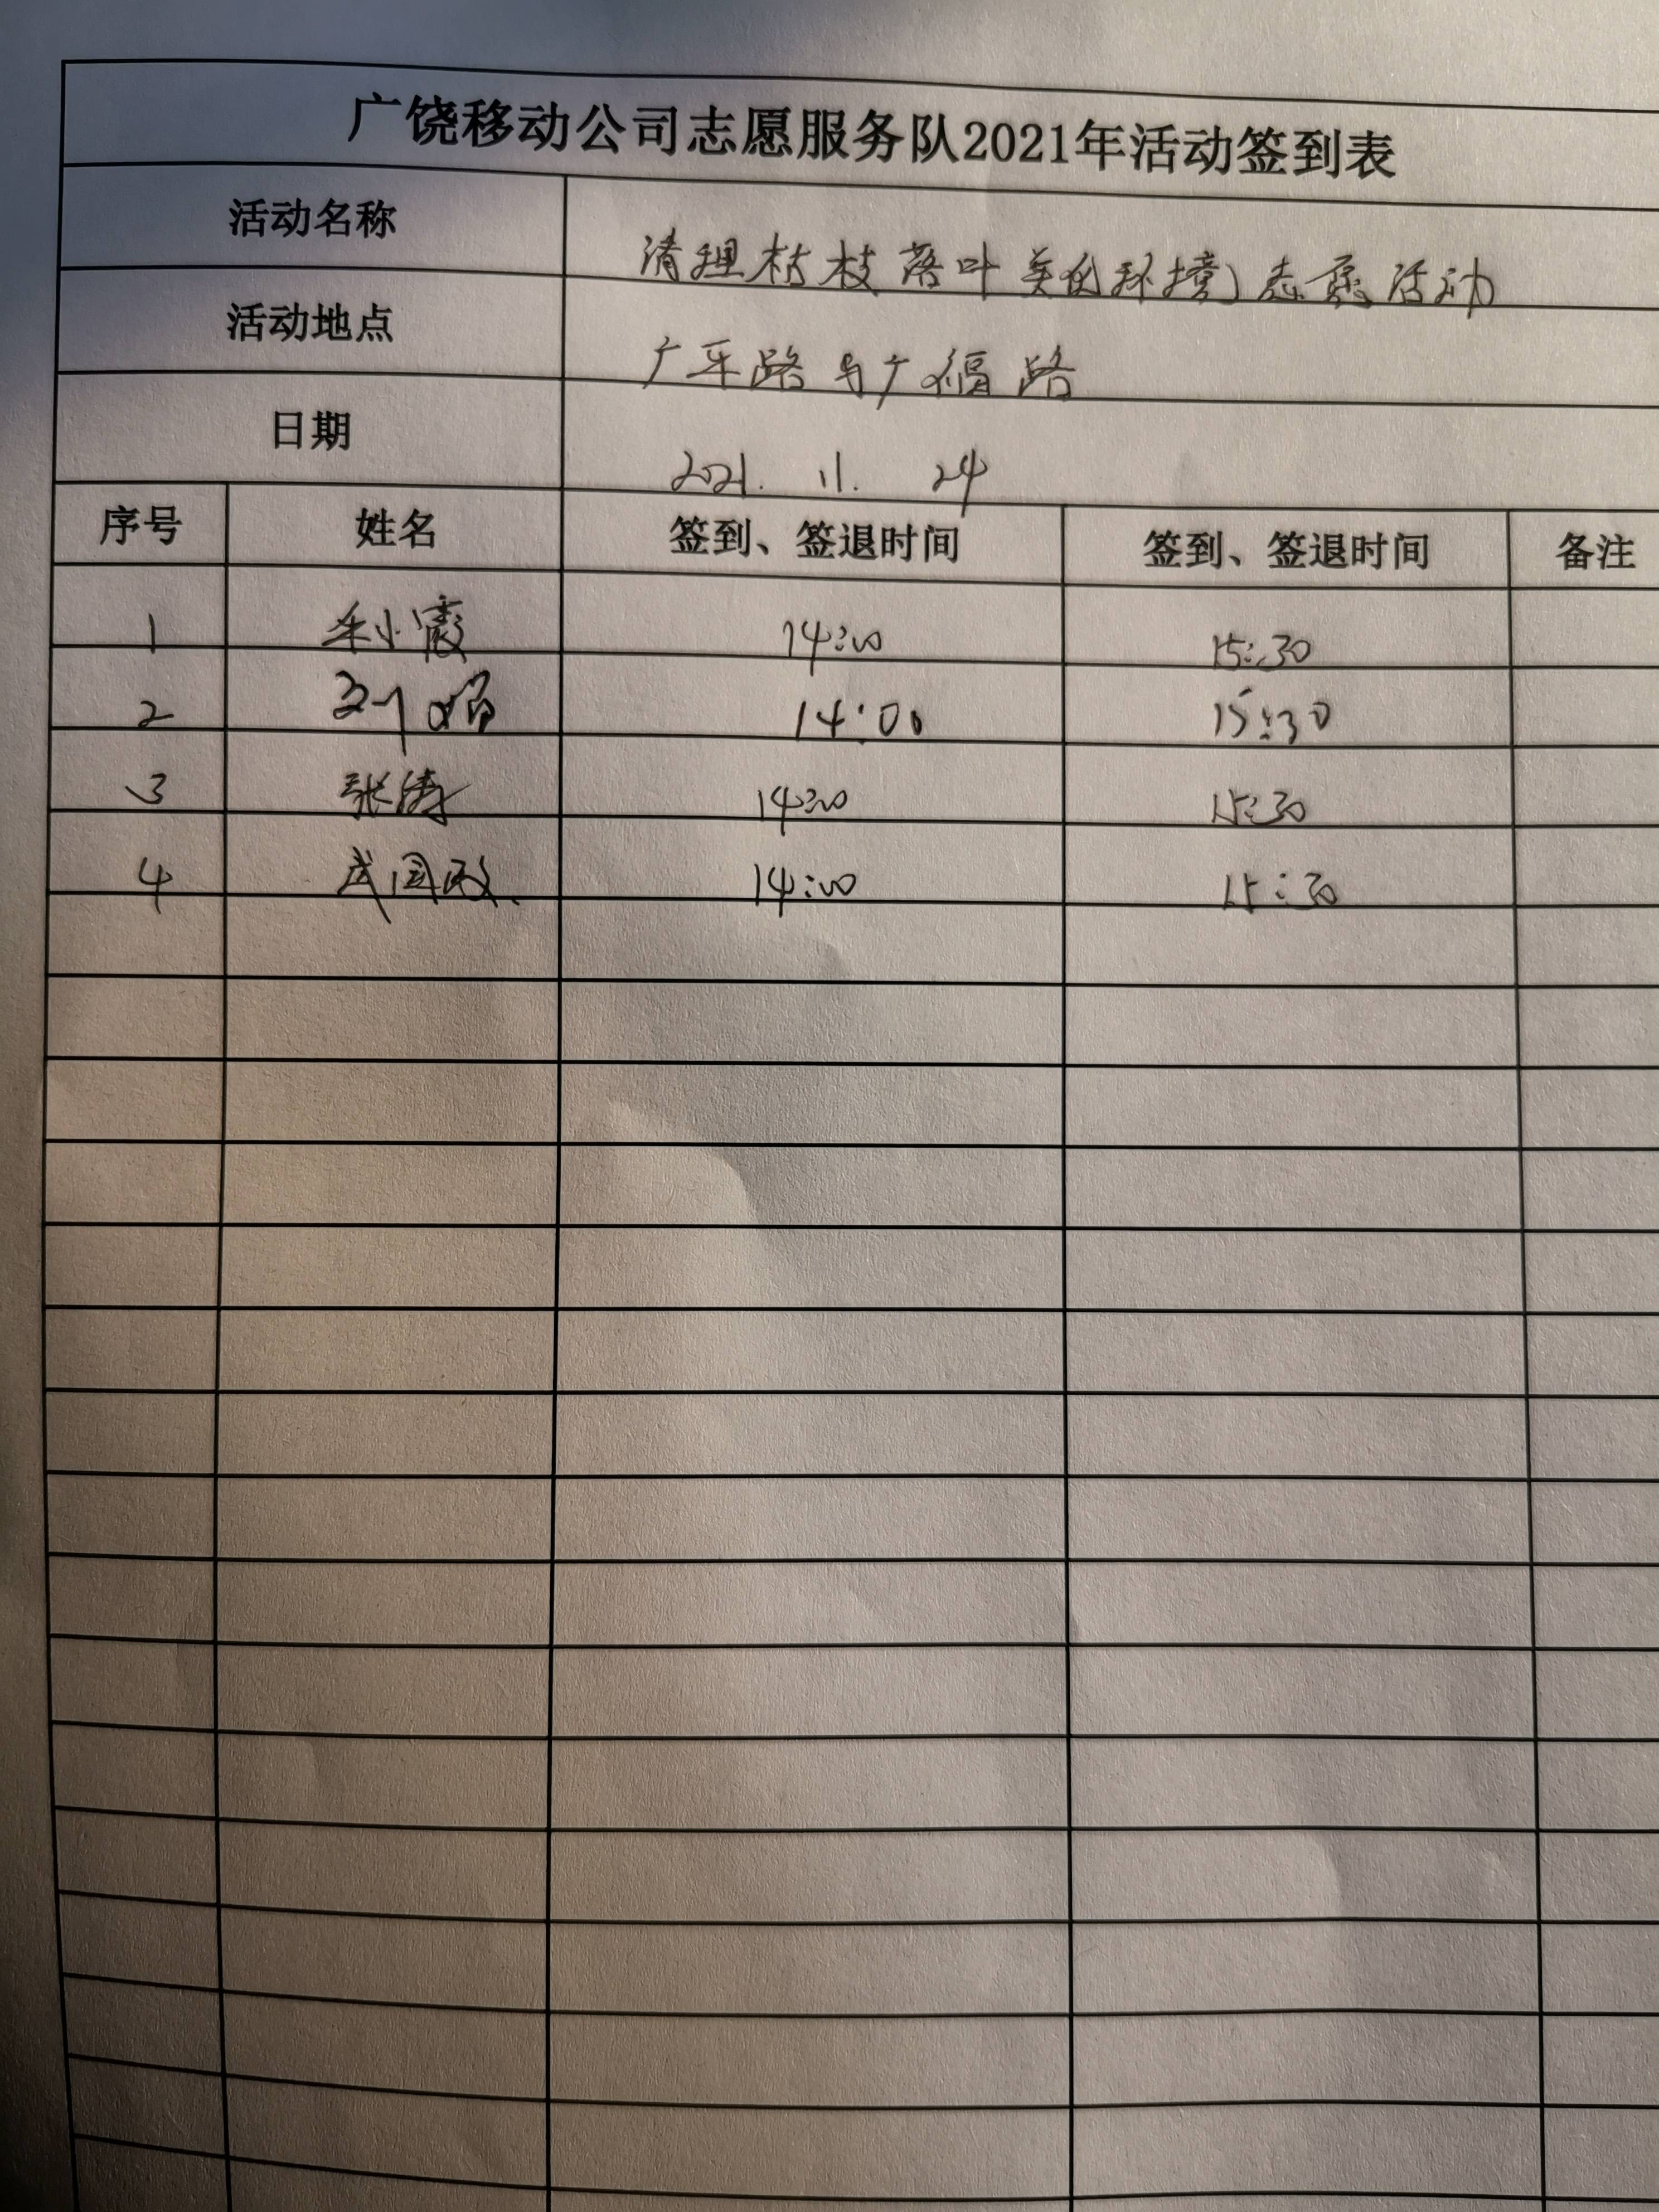 广饶移动公司志愿服务队2021年活动签到表
活动名称 清理枯枝落叶美化环境志愿活动
活动地点 广乐路与广福路
日期 2021. 11. 24
序号 姓名 签到、签退时间 签到、签退时间 备注
1 朱小霞 14:00 15:30
2 14:00 15:30
3 张涛 14:00 15:30
4 武国政 14:00 15:30